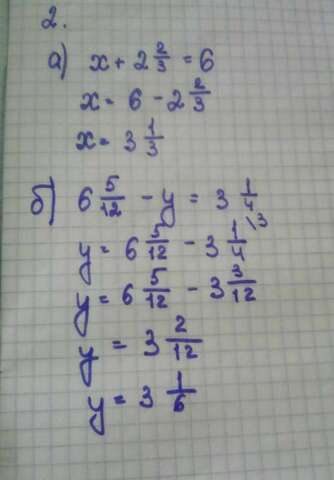 2.
а) x + 2 2/3 = 6
x = 6 - 2 2/3
x = 3 1/3
б) 6 5/12 - y = 3 1/4
y = 6 5/12 - 3 1/4 \3
y = 6 5/12 - 3 3/12
y = 3 2/12
y = 3 1/6